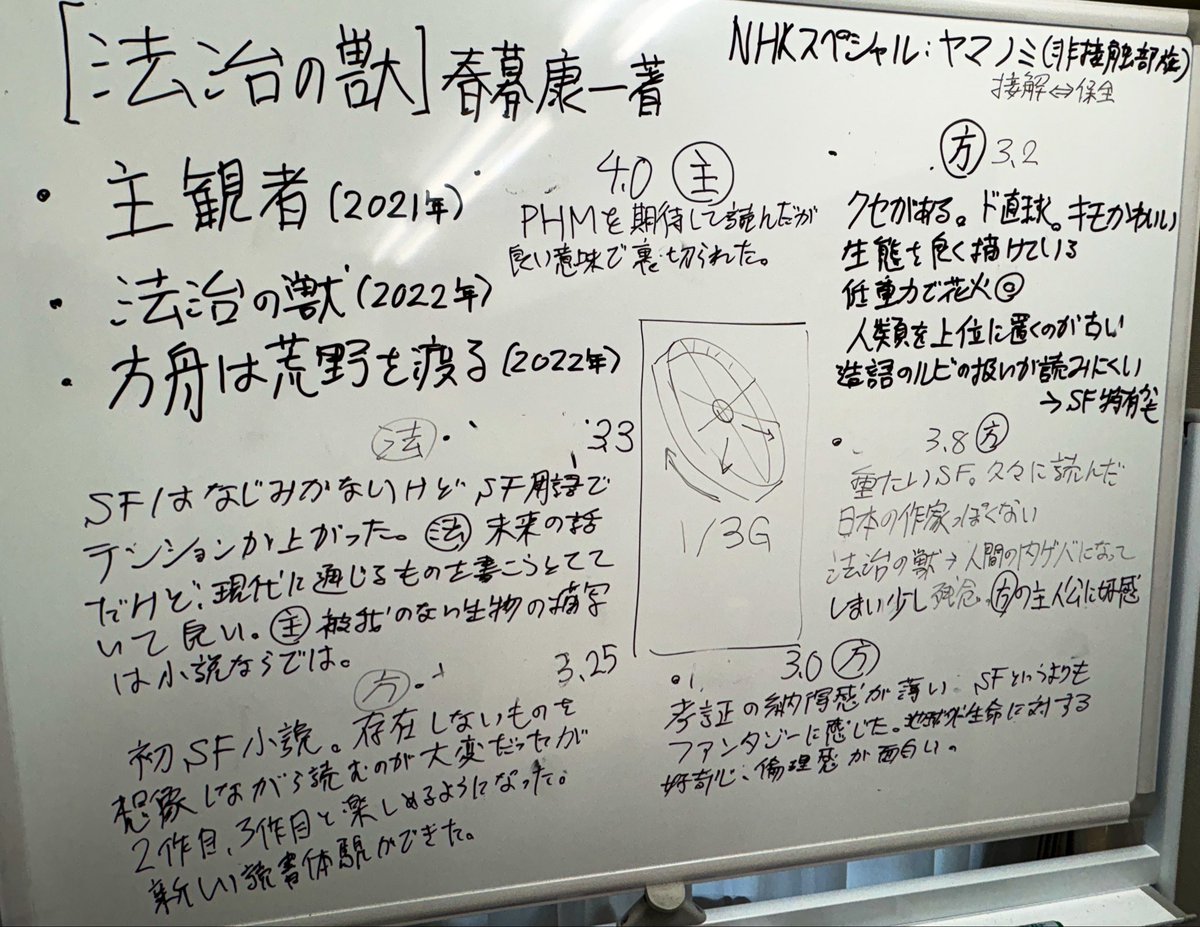 [法治の獣] 春暮康一著
NHKスペシャル:ヤマノミ(非接触部族)
接解⇔保全
・主観者(2021年)
・法治の獣(2022年)
・方舟は荒野を渡る(2022年)
4.0 主
PHMを期待して読んだが
良い意味で裏切られた。
・方 3.2
クセがある。ド直球。キモかわいい
生態を良く描けている
低重力で花火@
人類を上位に置くのが古い
造語のルビの扱いが読みにくい
→SF特有かも
法・ 3.3
SFはなじみがないけど SF用語で
テンションが上がった。法 未来の話
だけど、現代に通じるものを書こうとてて
いて良い。主 被我のない生物の描写
は小説ならでは。
1/3G
・3.8 方
重たいSF。久々に読んだ
日本の作家っぽくない
法治の獣→人間の内ゲバになって
しまい少し残念。方の主人公に好感
方・ 3.25
初SF小説。存在しないものを
想像しながら読むのが大変だったが
2作目、3作目と楽しめるようになった。
新しい読書体験ができた。
・3.0 方
考証の納得感が薄い SFというよりも
ファンタジーに感じた。地球外生命に対する
好奇心、倫理感が面白い。